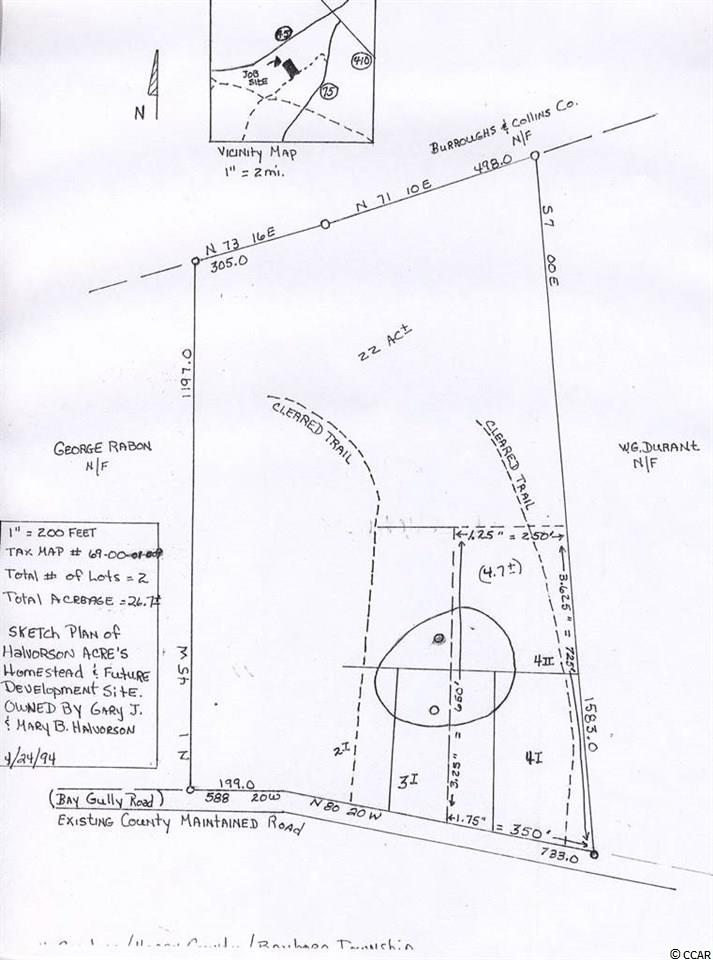 95
410
JOB
SITE
75
N
VICINITY MAP
1" = 2 mi.
BURROUGHS & COLLINS CO.
N/F
498.0
N 71 10 E
N 73 16 E
305.0
S 7 00 E
22 AC±
1197.0
CLEARED TRAIL
CLEARED TRAIL
GEORGE RABON
N/F
W.G. DURANT
N/F
1.25" = 250'
(4.7±)
3.625" = 725'
1" = 200 FEET
TAX MAP # 69-00-01-009
TOTAL # OF LOTS = 2
TOTAL ACREAGE = 26.7±
SKETCH PLAN OF
HALVORSON ACRE'S
HOMESTEAD & FUTURE
DEVELOPMENT SITE.
OWNED BY GARY J.
& MARY B. HALVORSON
4/24/94
4II
3.25" = 650'
1583.0
2I
3I
4I
199.0
(BAY GULLY ROAD)
588 20W
N 80 20 W
1.75" = 350'
733.0
EXISTING COUNTY MAINTAINED ROAD
Township
© CCAR